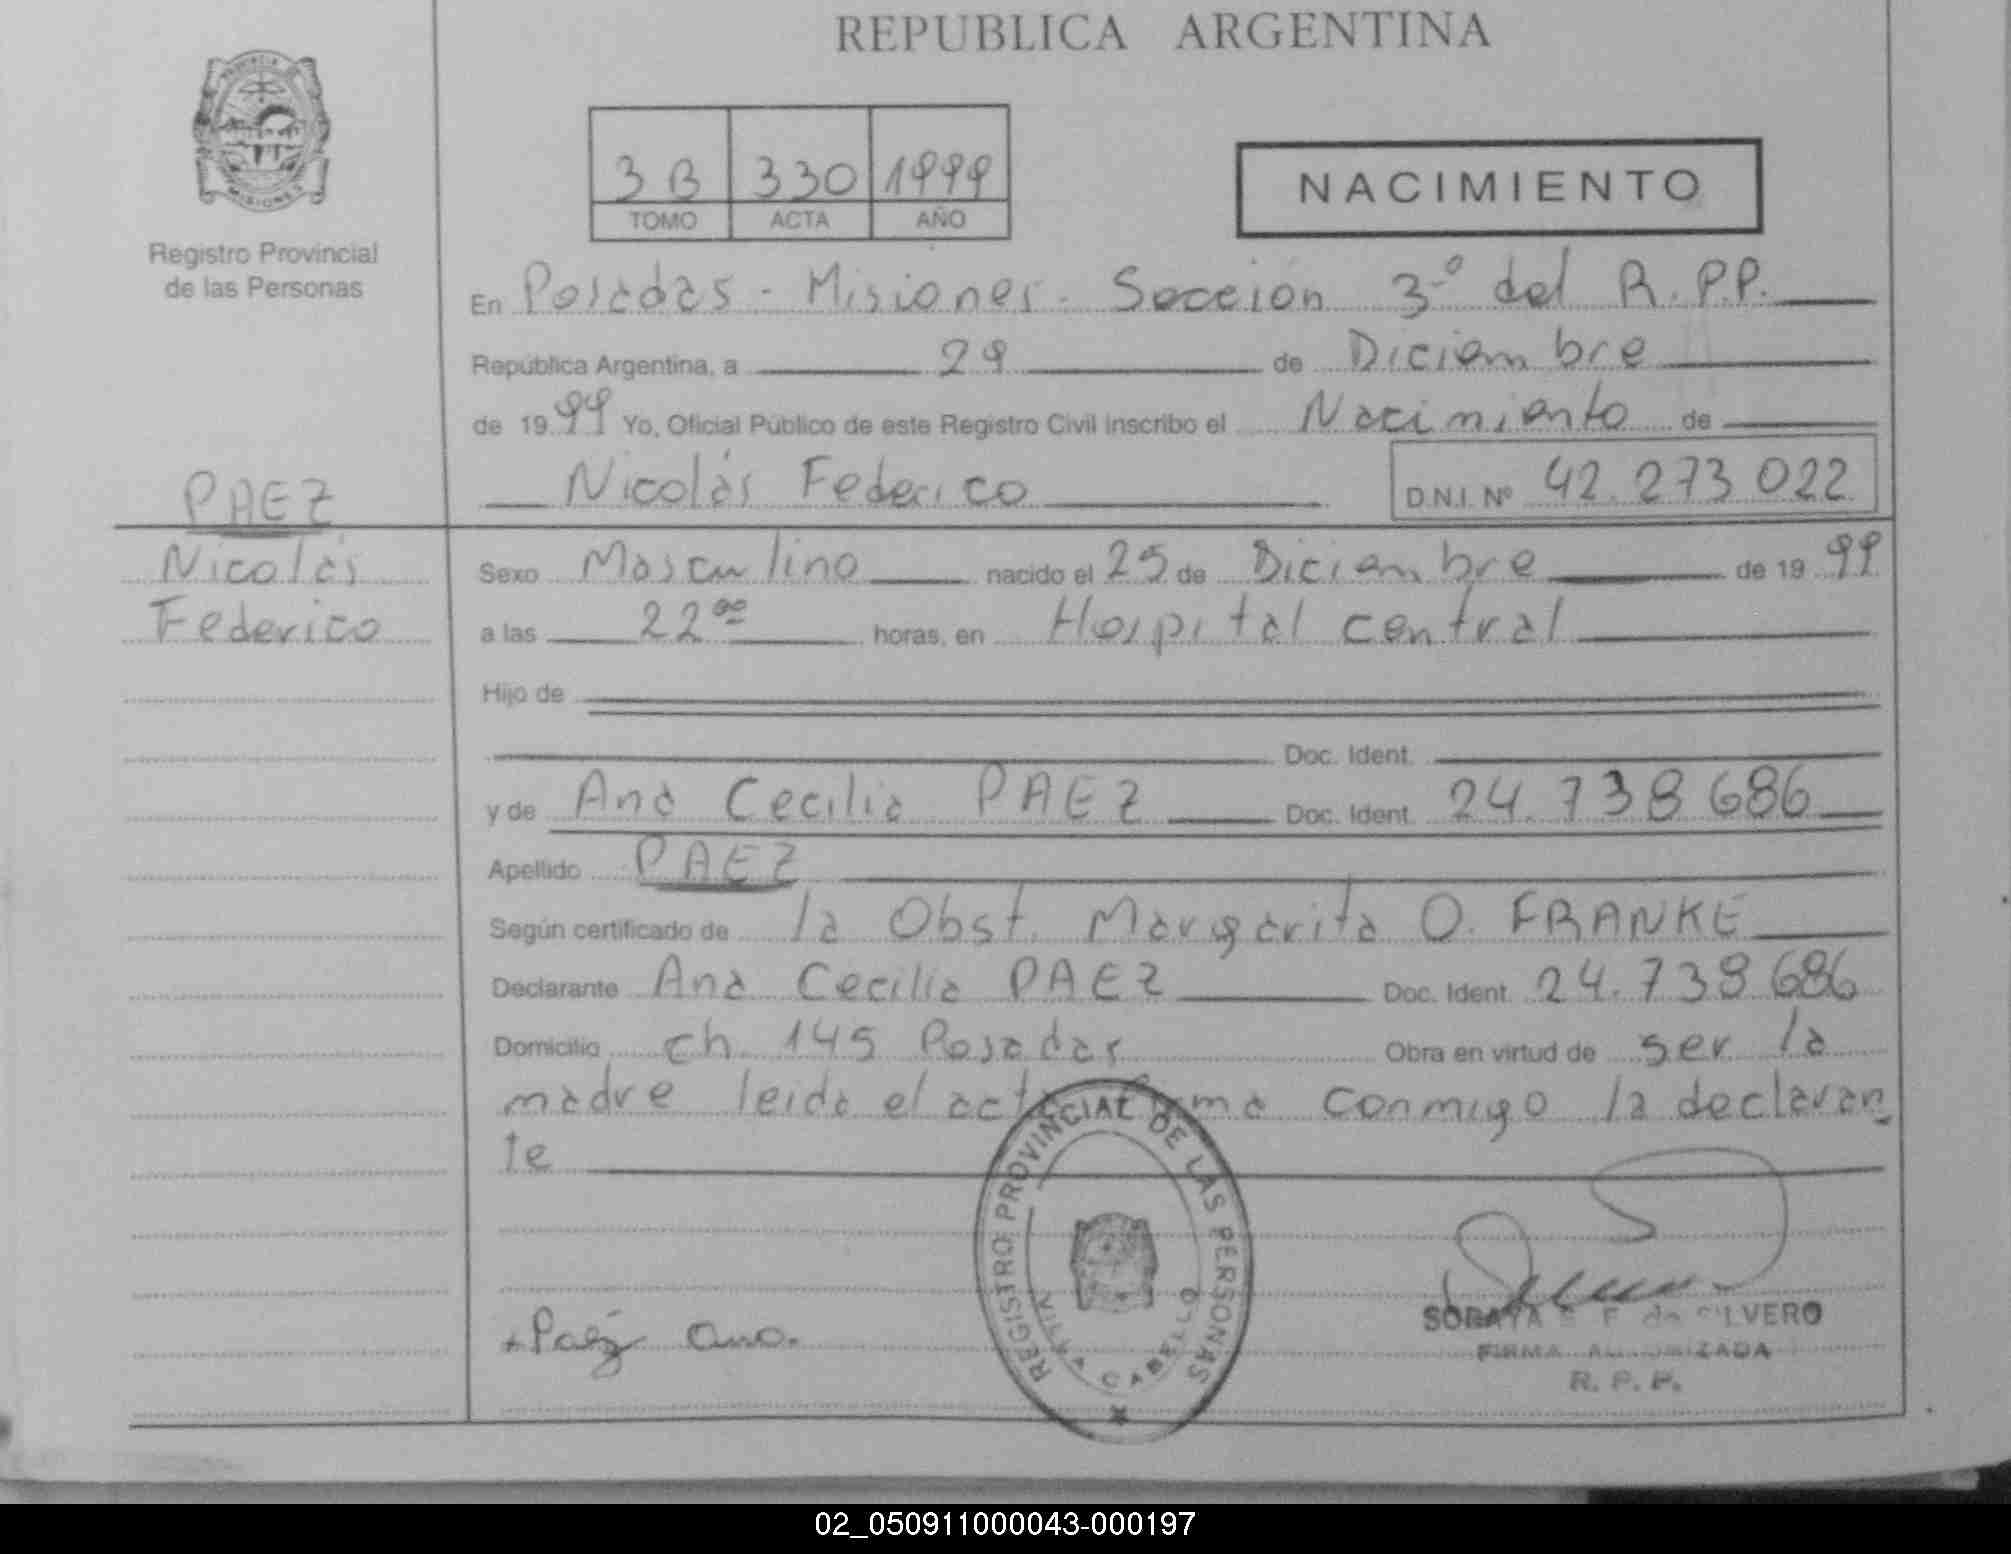 REPUBLICA ARGENTINA
PROVINCIA DE
MISIONES
Registro Provincial
de las Personas
3 B 330 1999
TOMO ACTA AÑO
NACIMIENTO
En Posadas - Misiones - Sección 3º del R.P.P.
República Argentina, a 29 de Diciembre
de 1999 Yo, Oficial Público de este Registro Civil inscribo el Nacimiento de
Nicolás Federico D.N.I. Nº 42.273.022
PAEZ
Nicolás
Federico
Sexo Masculino nacido el 25 de Diciembre de 1999
a las 22⁰⁰ horas, en Hospital central
Hijo de
Doc. Ident.
y de Ana Cecilia PAEZ Doc. Ident. 24.738.686
Apellido PAEZ
Según certificado de la Obst. Margarita O. FRANKE
Declarante Ana Cecilia PAEZ Doc. Ident. 24.738.686
Domicilio ch 145 Posadas Obra en virtud de ser la
madre leida el acta firma conmigo la declaran
te
REGISTRO PROVINCIAL DE LAS PERSONAS
VILLA CABELLO
+Paéz Ana.
SORAYA F. de SILVERO
FIRMA AUTORIZADA
R. P. P.
02_050911000043-000197